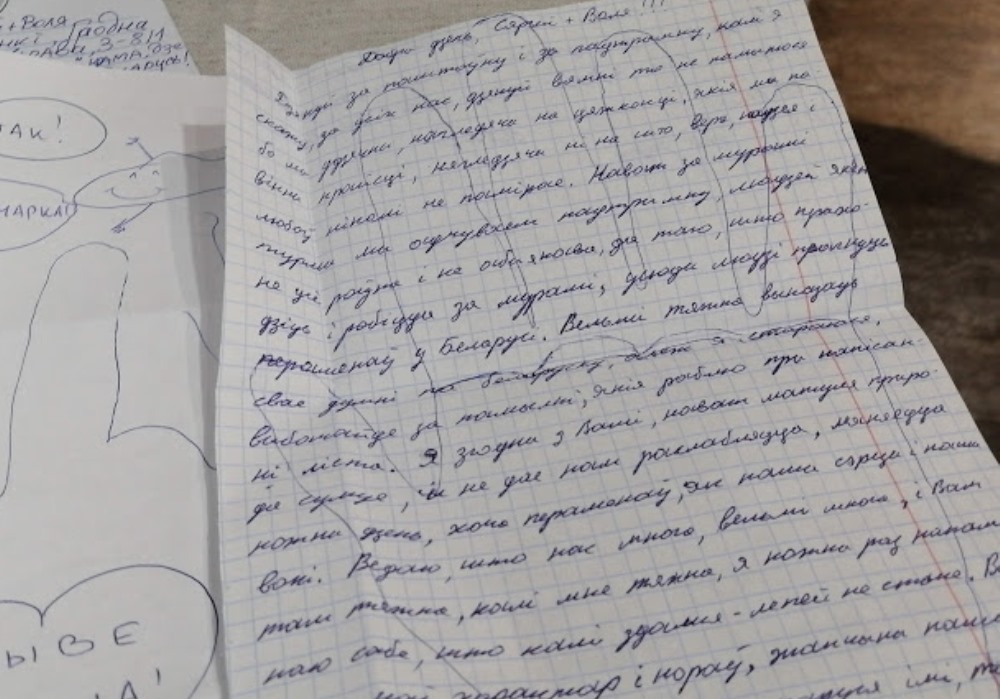 +Воля Гродна
3-8/1
АК!
МАРКА
ЫВЕ
А!
Добры дзень, Сяргей + Воля!!!
Дзякуй за паштоўку і за падтрымку, калі я
скажу, за усіх нас, дзякуй вялікі то не памылюся
бо мы удзячны, нягледзячы на цяжкасці, якія мы па-
вінны прайсці, нягледзячы ні на што, вера, надзея і
любоў ніколі не памірае. Нават за мурамі
турмы мы адчуваем падтрымку, людзей якім
не усё роўна і не абыякова, да таго, што прахо-
дзіць і робіцца за мурамі, усюды людзі
пераменаў у Беларусі. Вельмі тяжка выказаць
свае думкі па беларуску, але я стараюся,
выбачайце за памылкі, якія раблю пры напісан-
ні ліста. Я згодна з Вамі, нават матуля прыро-
да сумуе, і не дае нам расслабляцца, мяняецца
кожны дзень, хоча пераменаў, як нашы сэрцы і нашы
Ведаю, што нас многа, вельмі многа, і Вам
там тяжка, калі мне тяжка, я кожны раз напам
наю сабе, што калі здамся - лепей не стане. В
характар і нораў, жанчына
імі,